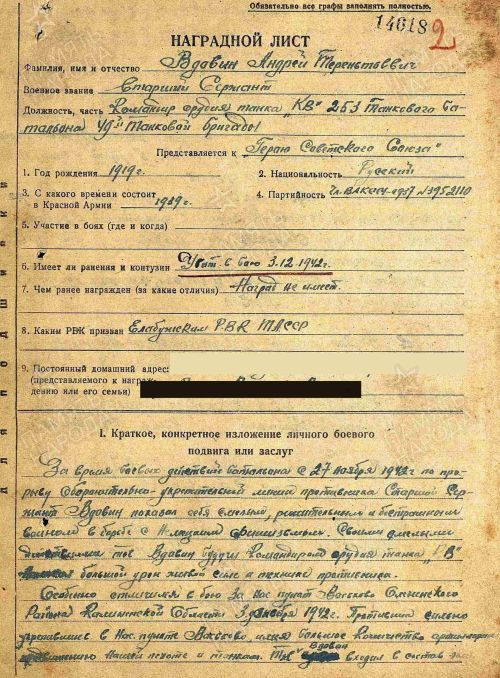 Обязательно все графы заполнять полностью.
14618 2
НАГРАДНОЙ ЛИСТ
Фамилия, имя и отчество Вдовин Андрей Терентьевич
Военное звание Старший Сержант
Должность, часть Командир орудия танка "КВ" 253 Танкового ба-
тальона Танковой бригады
Представляется к "Герою Советского Союза"
1. Год рождения 1919г. 2. Национальность Русский
3. С какого времени состоит
в Красной Армии 1939г. 4. Партийность Чл. ВЛКСМ-1937 №3952110
5. Участие в боях (где и когда)
6. Имеет ли ранения и контузии Убит в бою 3.12.1942г.
7. Чем ранее награжден (за какие отличия) Наград не имеет.
8. Каким РВК призван Елабужским РВК ТАССР
9. Постоянный домашний адрес:
(представляемого к награж
дению или его семьи)
I. Краткое, конкретное изложение личного боевого
подвига или заслуг
За время боевых действий батальона с 27 ноября 1942г по про-
рыву оборонительно-укрепительной линии противника Старший Сер-
жант Вдовин показал себя смелым, решительным и бесстрашным
воином в борьбе с Немецким фашизмом. Своими смелыми
действиями тов Вдовин будучи Командиром орудия танка "КВ"
большой урон живой силе и технике противника.
Особенно отличился в бою за Нас. пункт Васьково Оленинского
Района Калининской Области 3 декабря 1942г. Противник сильно
укрепившись в Нас. пункте Васьково, имея большое количество
нашей пехоте и танкам. Тов Вдовин входил в состав
для подшивки